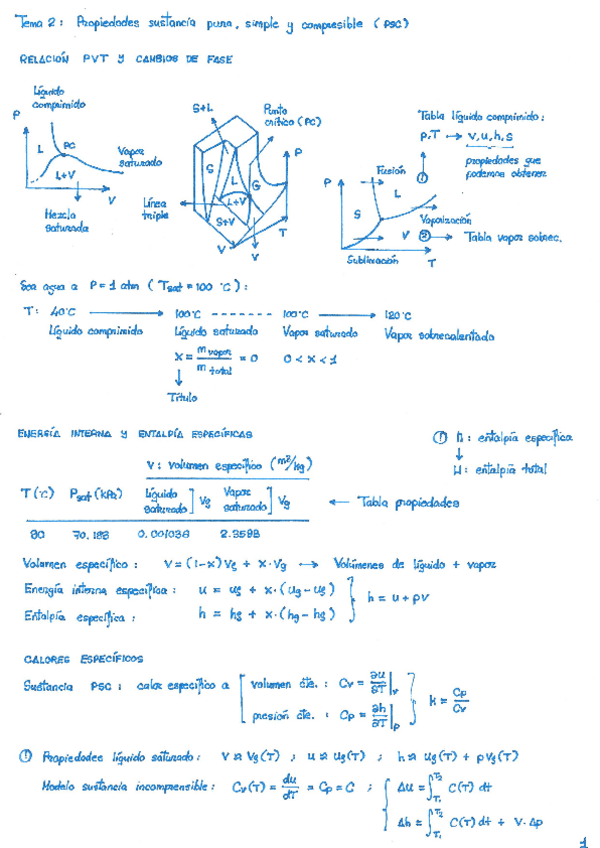 Tema 2: Propiedades sustancia pura, simple y compresible (PSC)
RELACIÓN PVT Y CAMBIOS DE FASE
Líquido
comprimido
P
L
PC
Vapor
saturado
L+V
V
Mezcla
saturada
S+L
Punto
crítico (PC)
P
S
L
G
L+V
Línea
triple
S+V
T
V
V
Tabla líquido comprimido:
P,T → v,u,h,s
propiedades que
podemos obtener
P
Fusión
①
L
S
Vaporización
V
② → Tabla vapor sobrec.
Sublimación
T
Sea agua a P=1 atm (Tsat = 100 °C):
T: 40°C → 100°C ------- 100°C → 120°C
Líquido comprimido Líquido saturado Vapor saturado Vapor sobrecalentado
x = m vapor / m total = 0 0 < x < 1
↓
Título
ENERGÍA INTERNA Y ENTALPÍA ESPECÍFICAS
① h: entalpía específica
↓
H: entalpía total
v: volumen específico (m³/kg)
T (°C) Psat (kPa) Líquido saturado] vg Vapor saturado] vg ← Tabla propiedades
90 70.183 0.001036 2.3593
Volumen específico: v = (1-x) vg + x·vg → Volúmenes de líquido + vapor
Energía interna específica: u = ug + x·(ug - ug)
Entalpía específica: h = hg + x·(hg - hg)
h = u + pv
CALORES ESPECÍFICOS
Sustancia PSC: calor específico a
volumen cte.: Cv = ∂u/∂T|v
presión cte.: Cp = ∂h/∂T|p
k = Cp/Cv
① Propiedades líquido saturado: v ≈ vg(T) ; u ≈ ug(T) ; h ≈ ug(T) + pvg(T)
Modelo sustancia incompresible: Cv(T) = du/dT = Cp = C ;
Δu = ∫T1T2 C(T) dt
Δh = ∫T1T2 C(T) dt + v·Δp
1